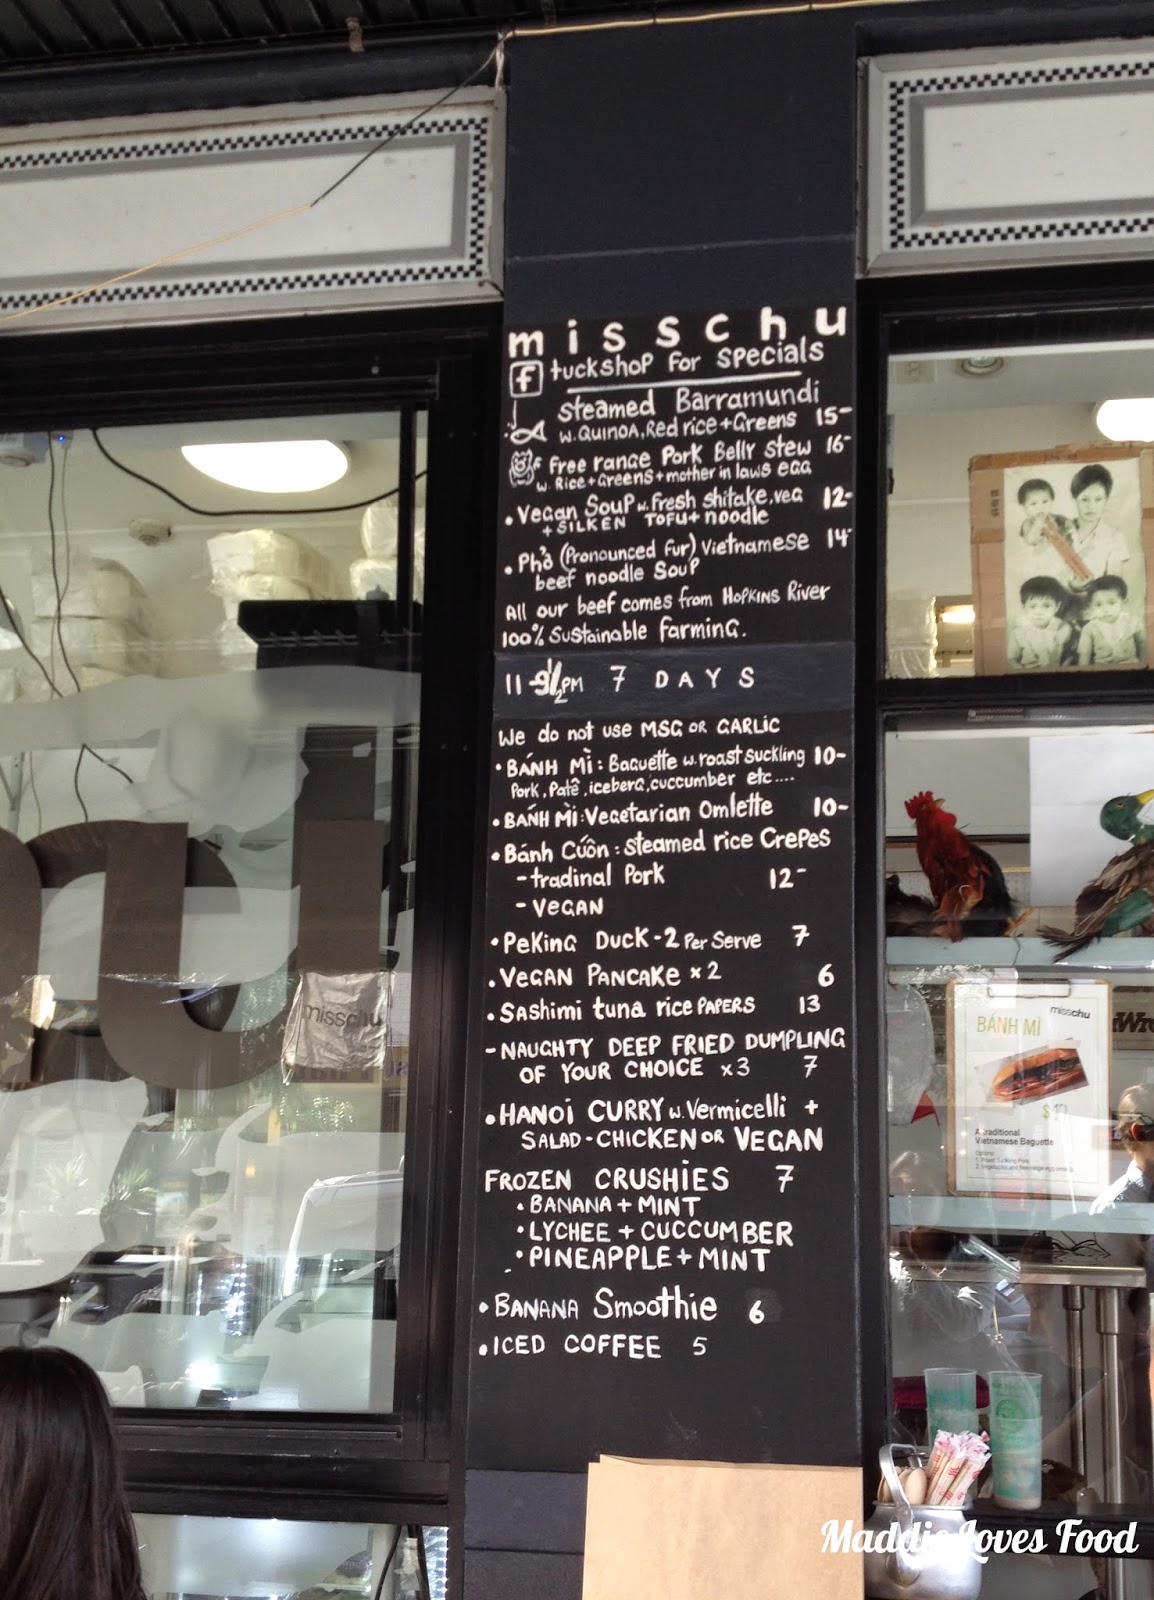 misschu
f tuckshop for specials
steamed Barramundi
w. Quinoa, Red rice + Greens 15-
free range Pork Belly stew 16-
w. Rice + Greens + mother in laws egg
• Vegan Soup w. fresh shitake, veg 12-
+ SILKEN TOFU + noodle
• Phở (Pronounced fur) Vietnamese 14-
beef noodle Soup
All our beef comes from Hopkins River
100% Sustainable farming.
11-9½PM 7 DAYS
We do not use MSG OR GARLIC
• BÁNH MÌ: Baguette w. roast suckling 10-
Pork, Patê, iceberg, cuccumber etc....
• BÁNH MÌ: Vegetarian Omlette 10-
• Bánh Cuốn: steamed rice Crepes
- tradinal Pork 12-
- VEGAN
• Peking Duck - 2 Per Serve 7
• VEGAN PANCAKE x 2 6
• Sashimi tuna rice PAPERS 13
- NAUGHTY DEEP FRIED DUMPLING
OF YOUR CHOICE x3 7
• HANOI CURRY w. Vermicelli +
SALAD - CHICKEN OR VEGAN
FROZEN CRUSHIES 7
• BANANA + MINT
• LYCHEE + CUCCUMBER
• PINEAPPLE + MINT
• BANANA Smoothie 6
• ICED COFFEE 5
misschu
misschu
BÁNH MÌ
A traditional
Vietnamese Baguette
Maddie Loves Food